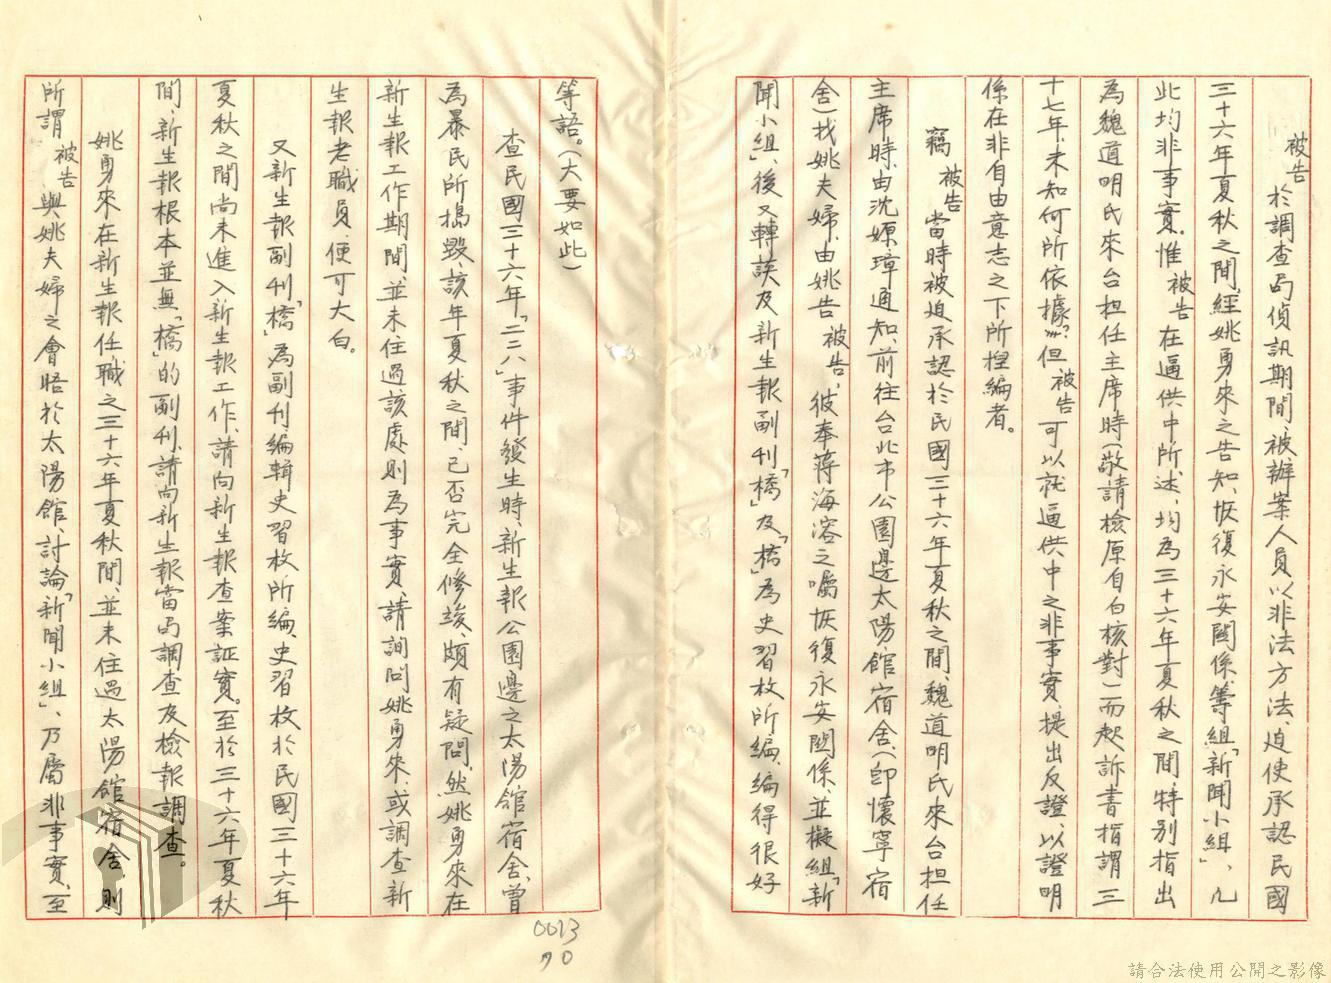 被告於調查局偵訊期間、被辦案人員以非法方法、迫使承認民國
三十六年夏秋之間、經姚勇來之告知、恢復永安關係、籌組「新聞小組」、凡
此均非事實。惟被告在逼供中所述、均為三十六年夏秋之間特別指出
為魏道明氏來台担任主席時(敬請檢原自白核對)而起訴書指謂三
十七年、未知何所依據？但被告可以就逼供中之非事實、提出反證、以證明
係在非自由意志之下所捏編者。
竊被告當時被迫承認於民國三十六年夏秋之間、魏道明氏來台担任
主席時、由沈嫄璋通知、前往台北市公園邊太陽館宿舍、(即懷寧宿
舍)找姚夫婦、由姚告被告、彼奉蔣海溶之囑恢復永安關係、並擬組「新
聞小組」、後又轉談及新生報副刊「橋」及「橋」為史習枚所編、編得很好
等語。(大要如此)
查民國三十六年、「二二八」事件發生時、新生報公園邊之太陽館宿舍、曾
為暴民所搗毀、該年夏秋之間、已否完全修竣、頗有疑問、然姚勇來在
新生報工作期間、並未住過該處、則為事實、請詢問姚勇來、或調查新
生報老職員、便可大白。
又新生報副刊「橋」為副刊編輯史習枚所編、史習枚於民國三十六年
夏秋之間尚未進入新生報工作、請向新生報查案証實。至於三十六年夏秋
間、新生報根本並無「橋」的副刊、請向新生報當局調查及檢報調查。
姚勇來在新生報任職之三十六年夏秋間、並未住過太陽館宿舍、則
所謂被告與姚夫婦之會晤於太陽館、討論「新聞小組」、乃屬非事實、至
0013
70
請合法使用公開之影像